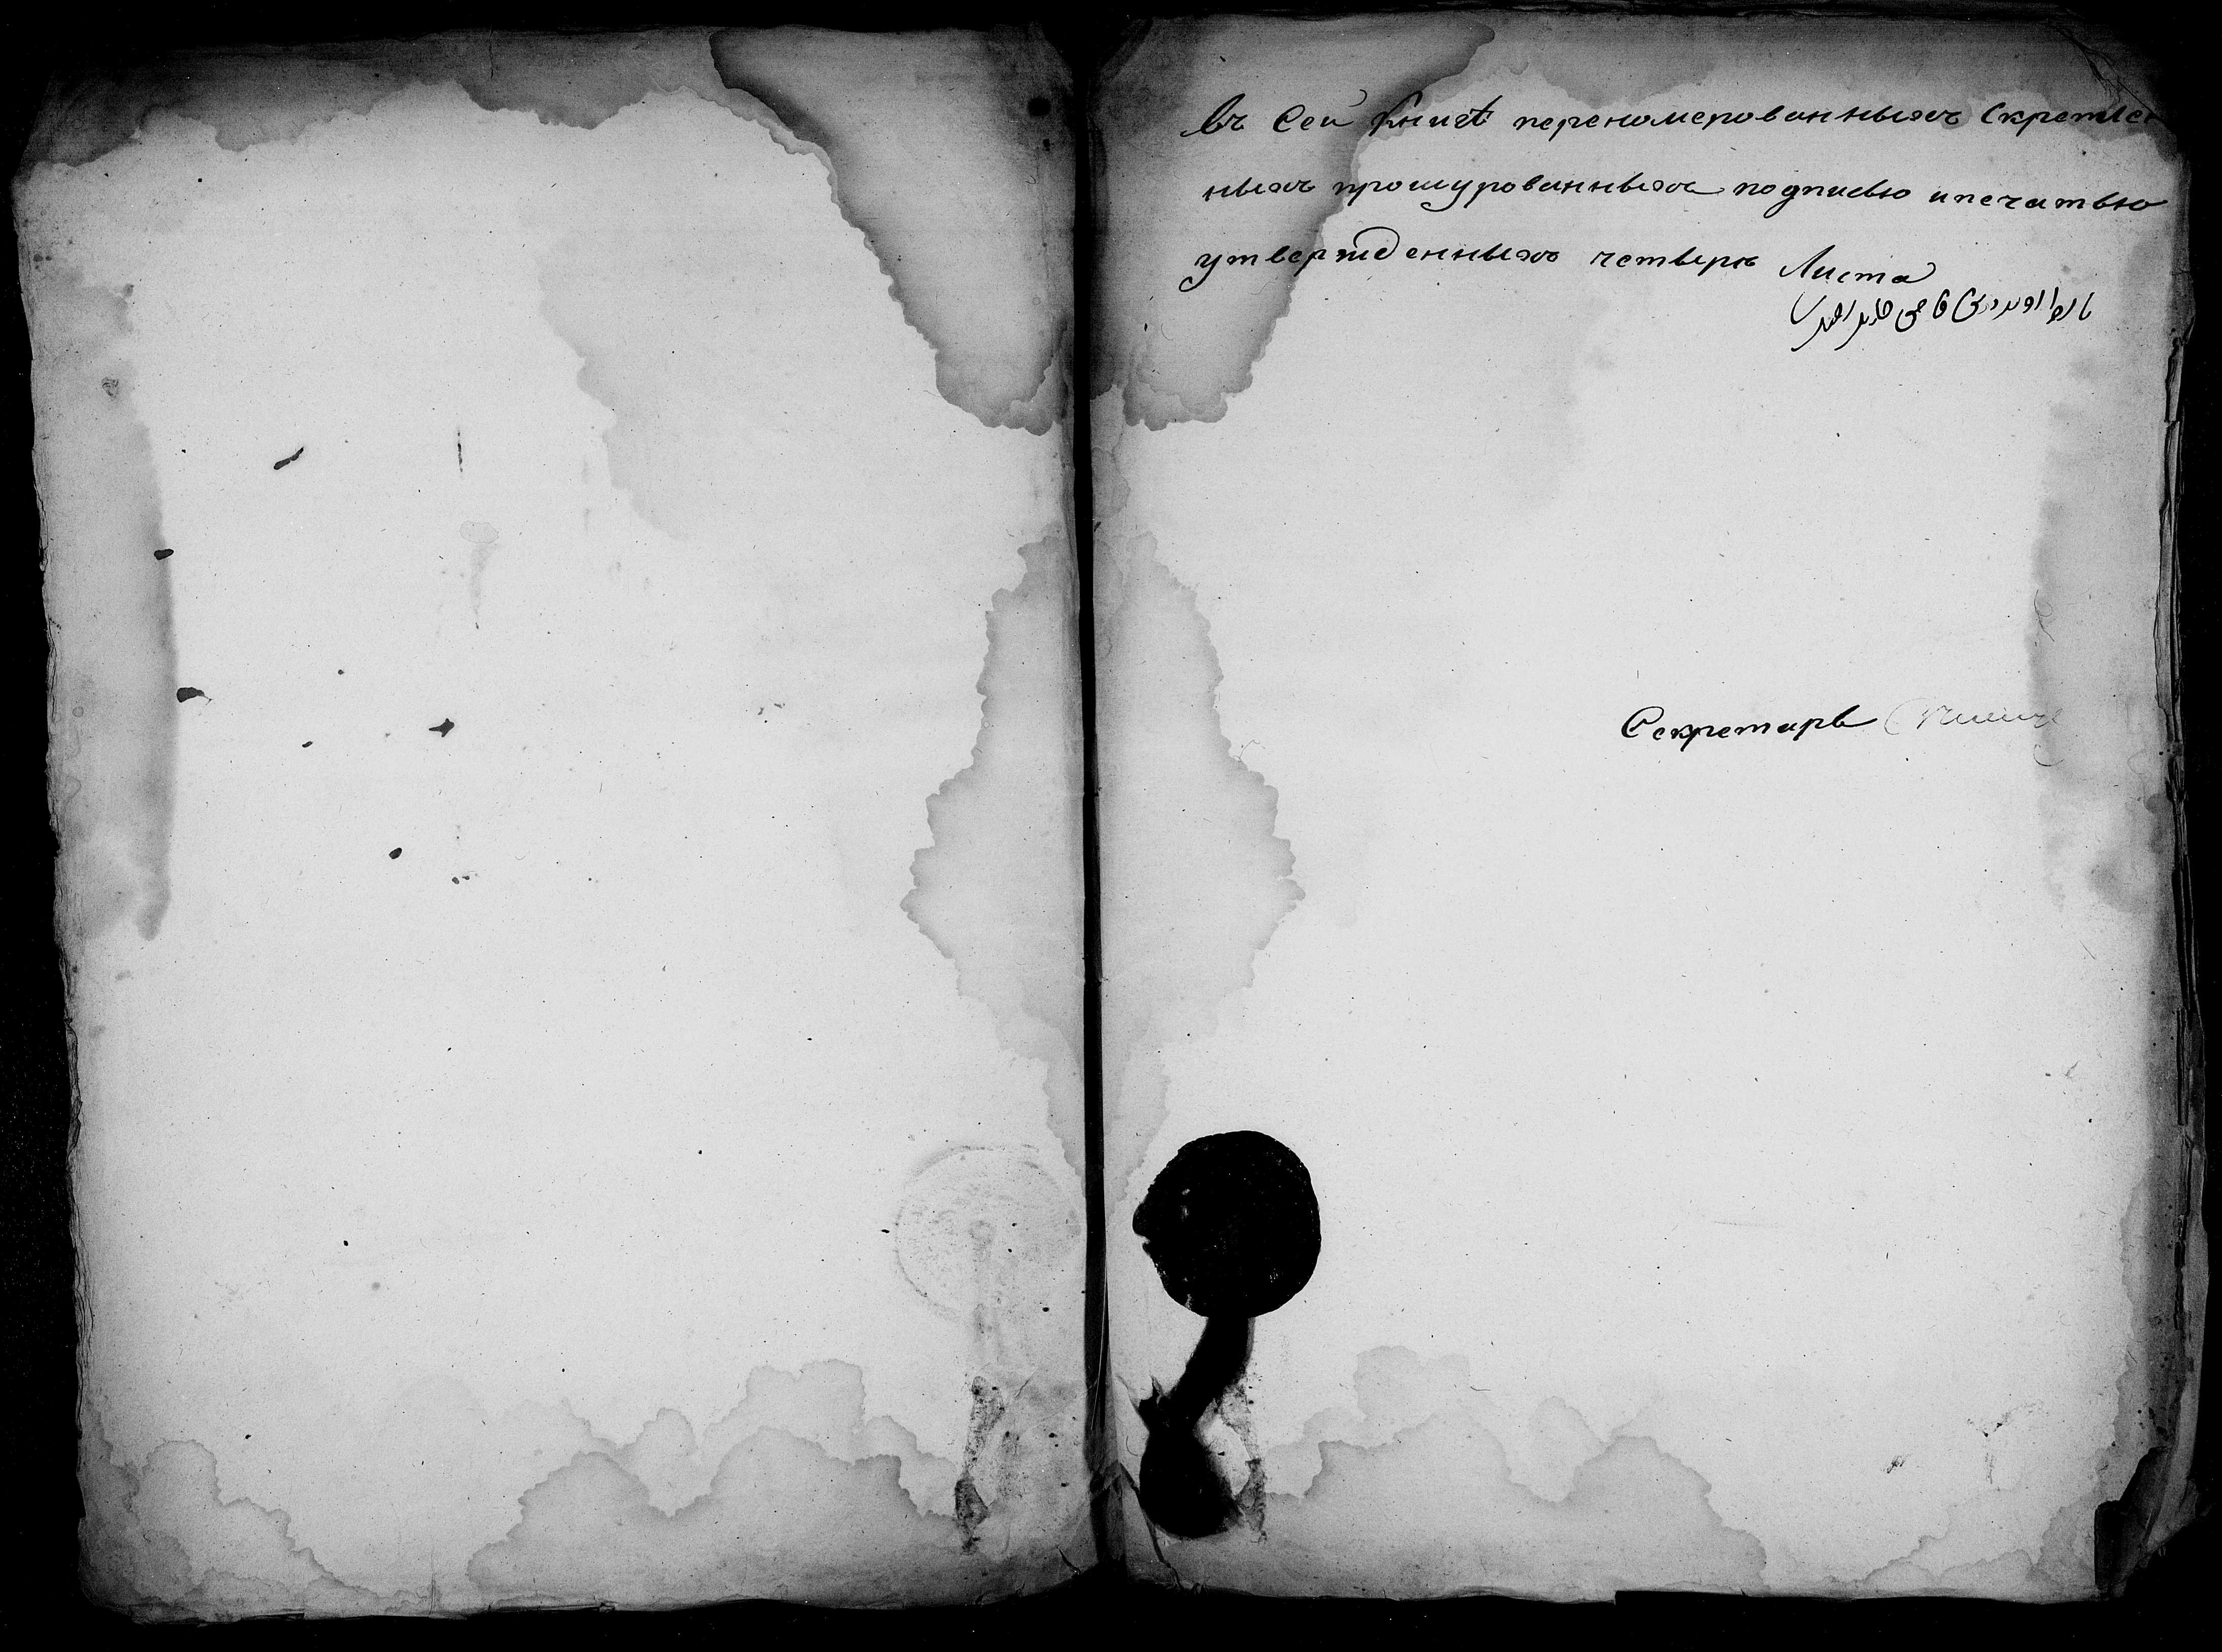 Въ Сей Книгѣ переномерованныхъ Скреплен
ныхъ прошнурованныхъ подписью ипечатью
утвержденныхъ четыре Листа
Секретарь